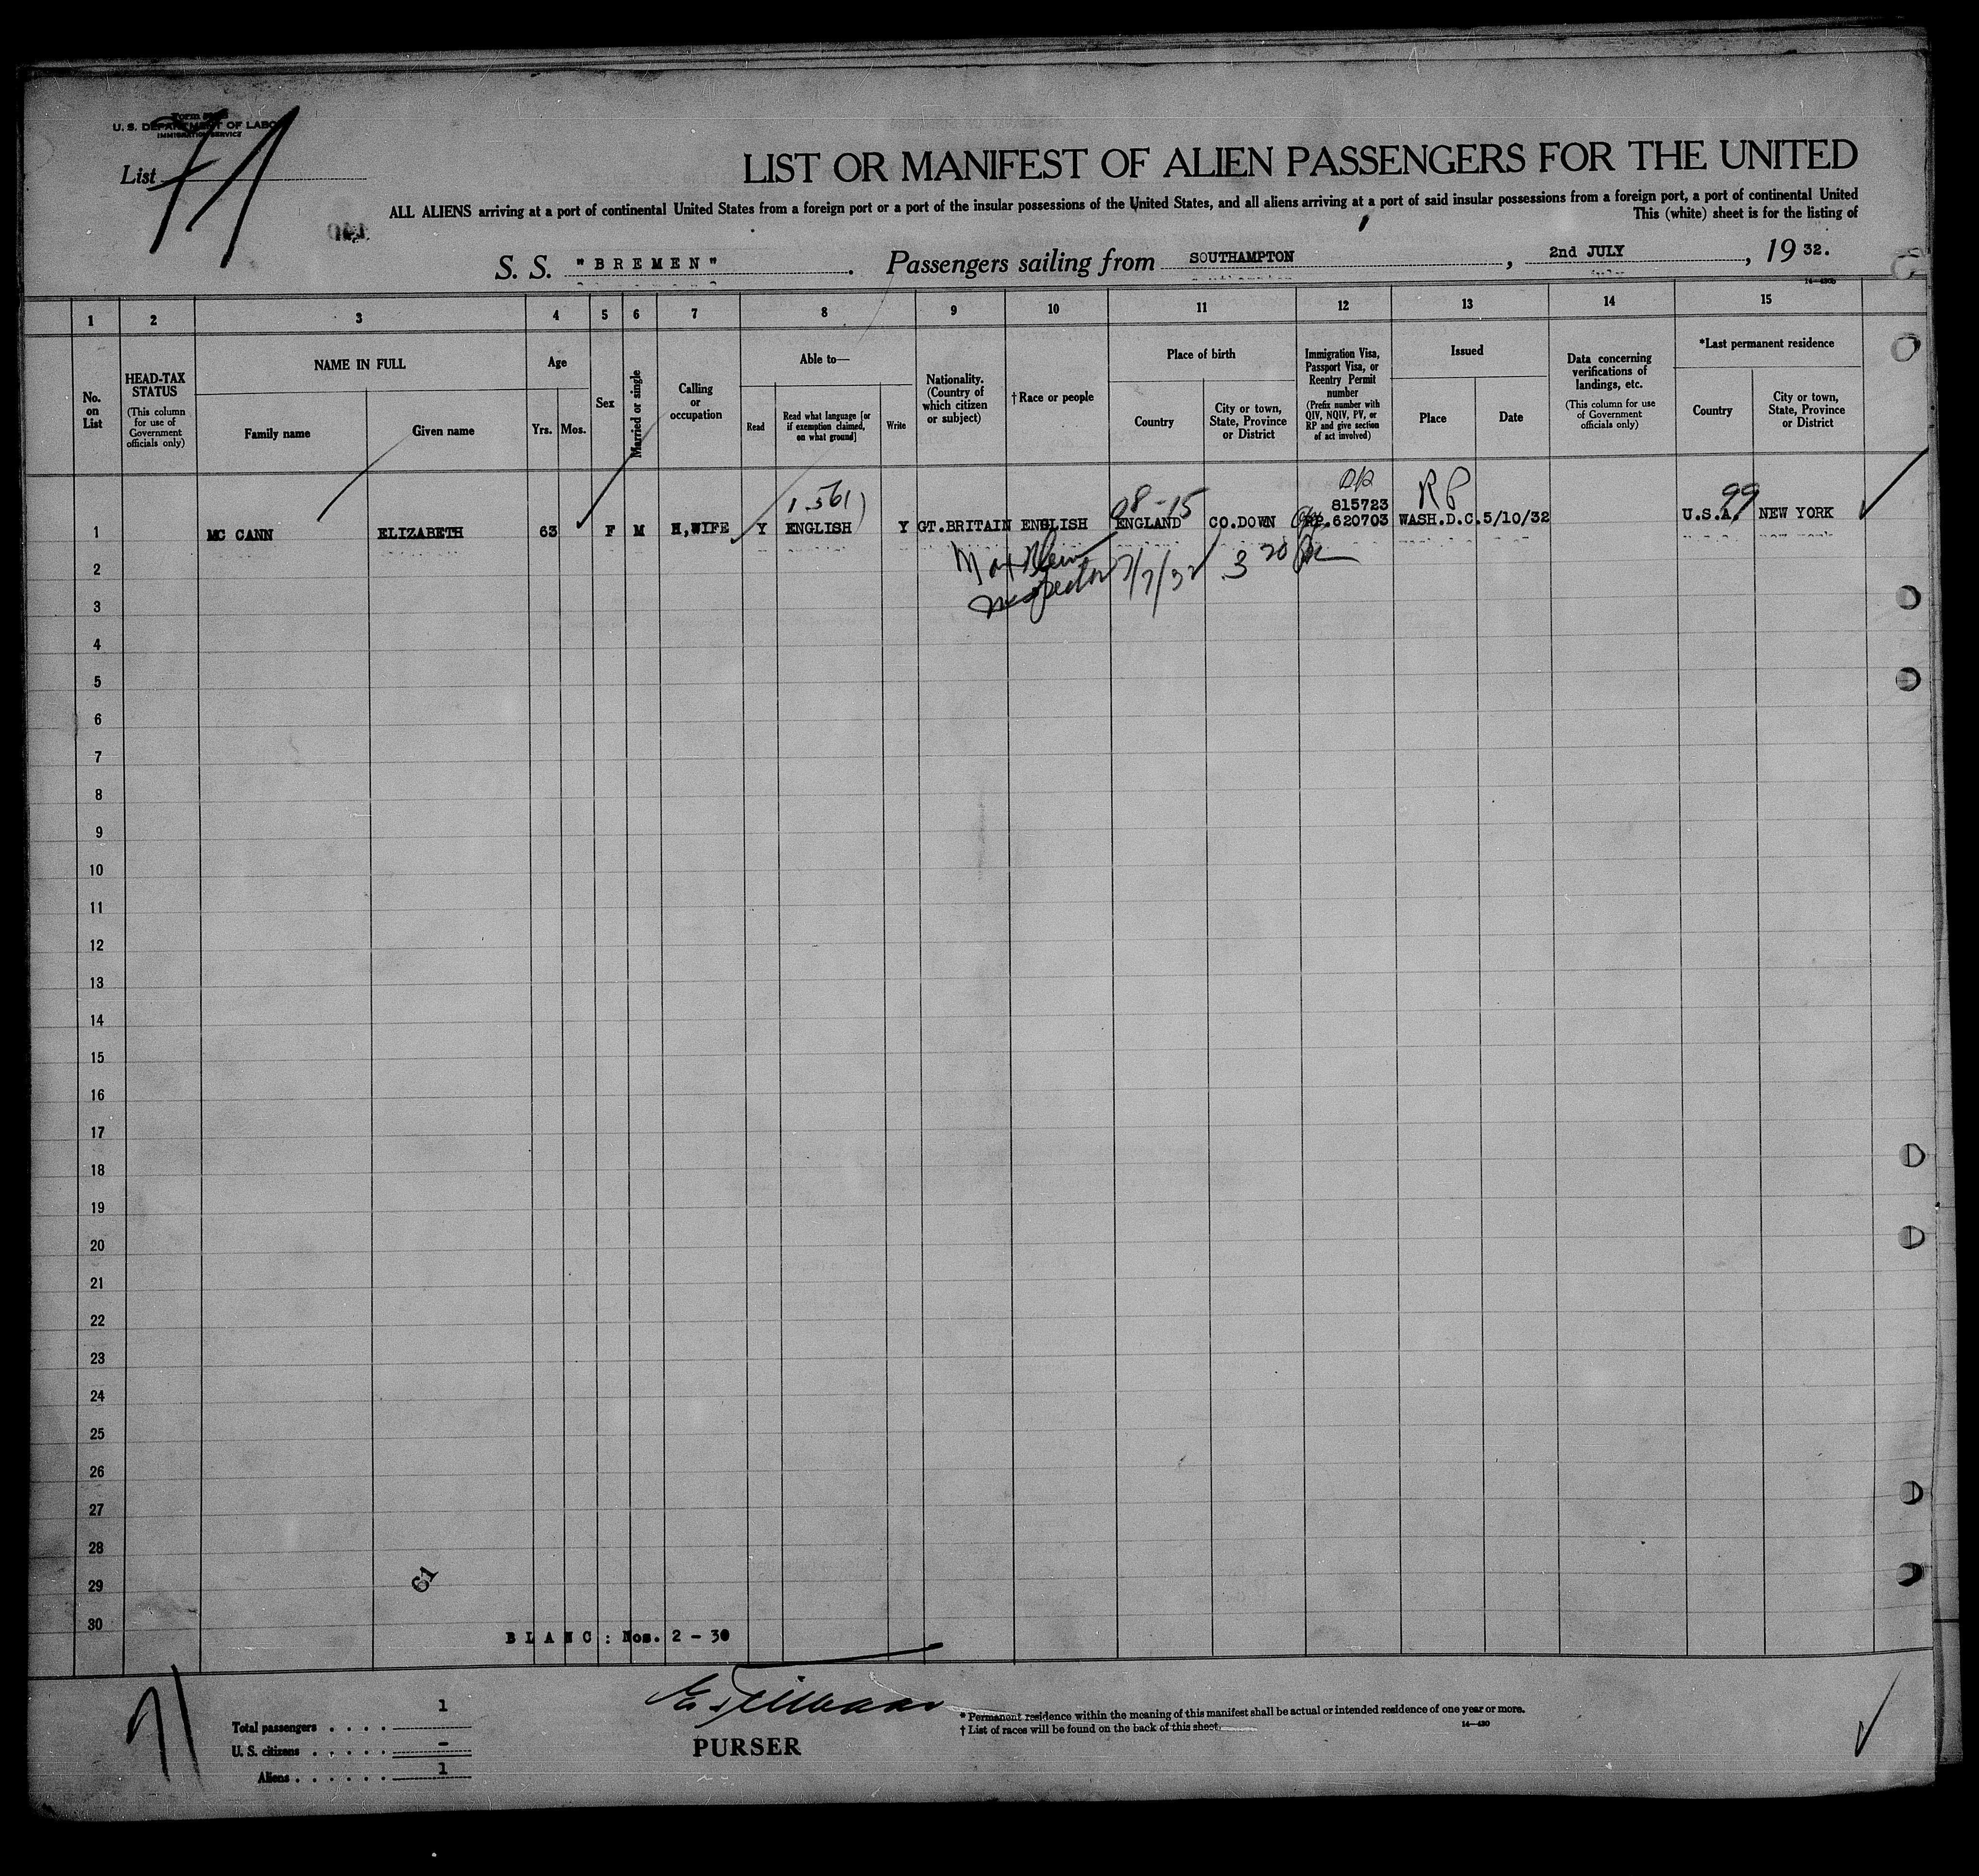 U. S. DEPARTMENT OF LABOR
IMMIGRATION SERVICE
List
LIST OR MANIFEST OF ALIEN PASSENGERS FOR THE UNITED
ALL ALIENS arriving at a port of continental United States from a foreign port or a port of the insular possessions of the United States, and all aliens arriving at a port of said insular possessions from a foreign port, a port of continental United
This (white) sheet is for the listing of
S. S. "BREMEN". Passengers sailing from SOUTHAMPTON, 2nd JULY, 19 32.
1 2 3 4 5 6 7 8 9 10 11 12 13 14 15
No. on List
HEAD-TAX STATUS (This column for use of Government officials only)
NAME IN FULL
Family name
Given name
Age
Yrs. Mos.
Sex
Married or single
Calling or occupation
Able to—
Read
Read what language [or if exemption claimed, on what ground]
Write
Nationality. (Country of which citizen or subject)
†Race or people
Place of birth
Country
City or town, State, Province or District
Immigration Visa, Passport Visa, or Reentry Permit number (Prefix number with QIV, NQIV, PV, or RP and give section of act involved)
Issued
Place
Date
Data concerning verifications of landings, etc. (This column for use of Government officials only)
*Last permanent residence
Country
City or town, State, Province or District
08-15
815723
RP
99
1 MC CANN ELIZABETH 63 F M H,WIFE Y ENGLISH Y GT.BRITAIN ENGLISH ENGLAND CO.DOWN RP.620703 WASH.D.C. 5/10/32 U.S.A. NEW YORK
Inspector 7/7/32
2
3
4
5
6
7
8
9
10
11
12
13
14
15
16
17
18
19
20
21
22
23
24
25
26
27
28
29
61
30
BLANC: Nos. 2 - 30
Total passengers . . . . 1
U. S. citizens . . . . . -
Aliens . . . . . . 1
PURSER
* Permanent residence within the meaning of this manifest shall be actual or intended residence of one year or more.
† List of races will be found on the back of this sheet.
14—430